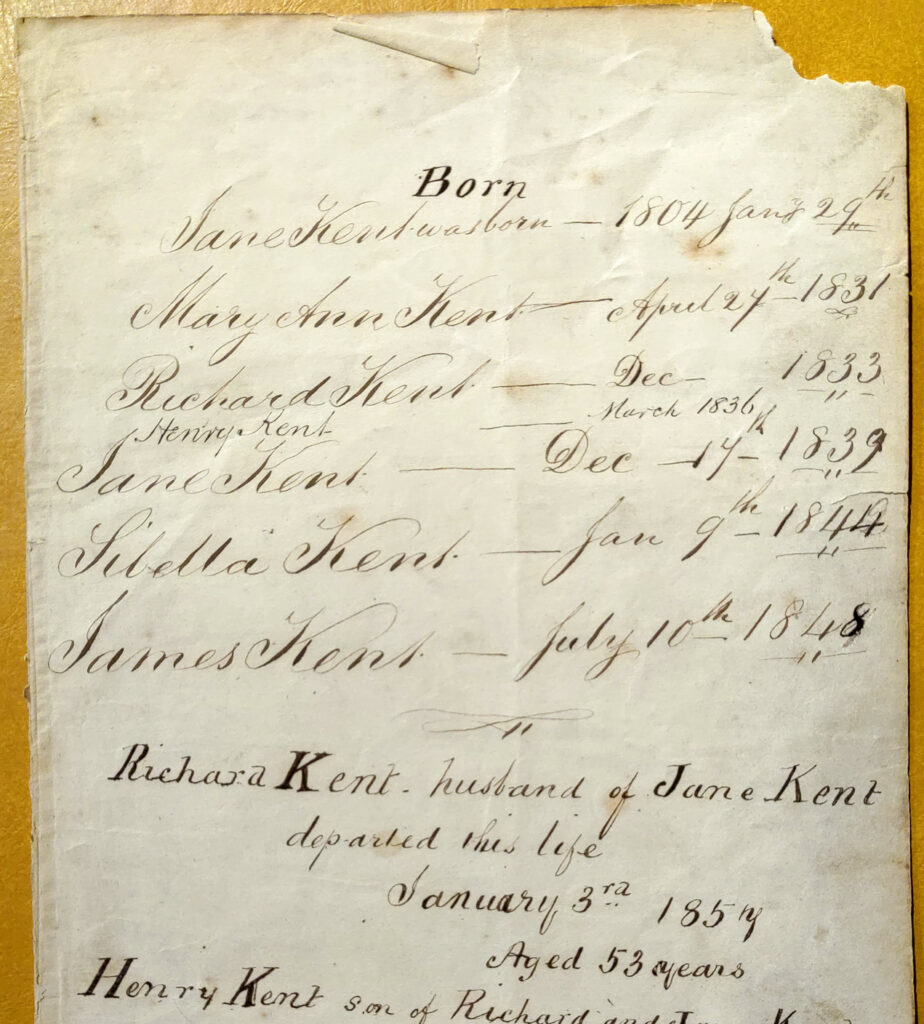 Born
Jane Kent was born — 1804 Jany 29th
Mary Ann Kent — April 27th 1831
Richard Kent — Dec — 1833
Henry Kent — March 1836
Jane Kent — Dec — 17th — 1839
Sibella Kent — Jan 9th — 1844
James Kent — July 10th 1848
Richard Kent. husband of Jane Kent
departed this life
January 3rd 1857
Aged 53 years
Henry Kent son of Richard and Jane Kent